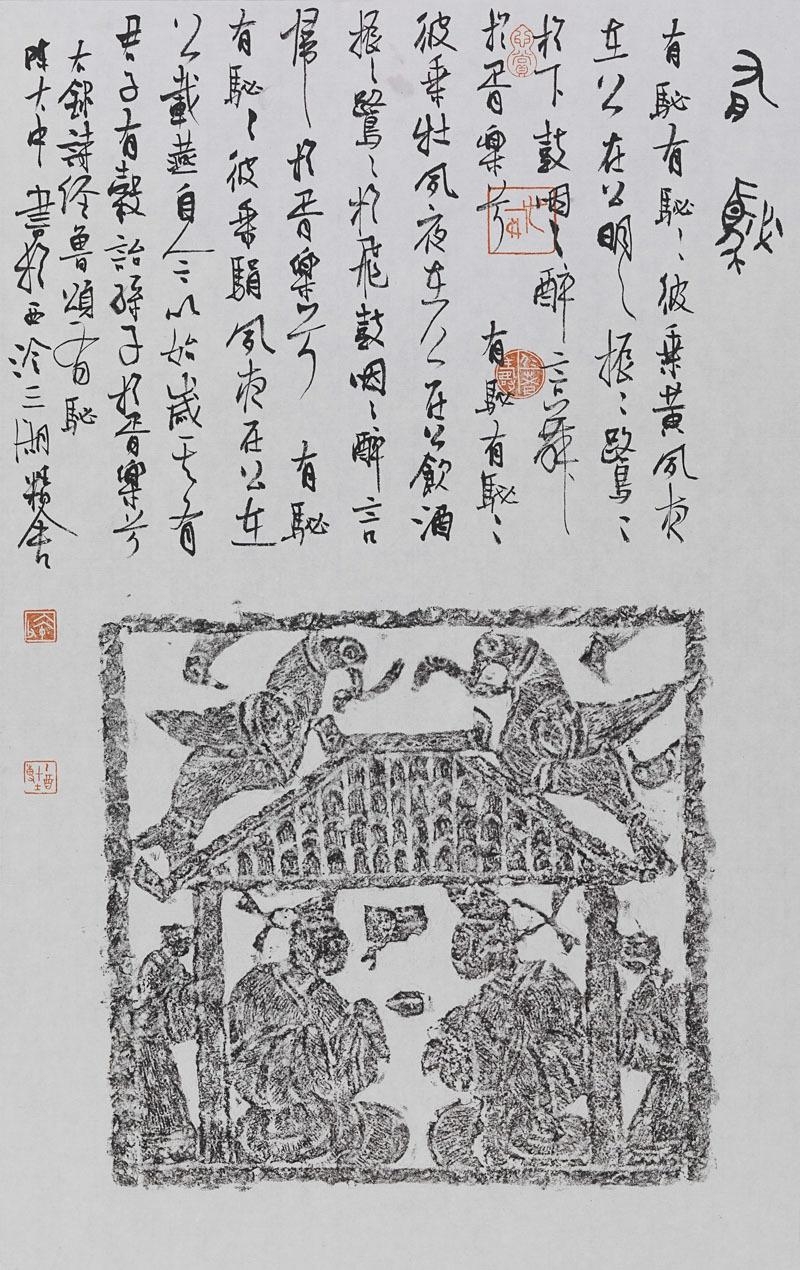 有駜
有駜有駜〻彼乘黃夙夜
在公在公明〻振〻鷺〻
於下鼓咽〻醉言舞
於胥樂兮 有駜有駜〻
彼乘牡夙夜在公在公飲酒
振〻鷺〻於飛鼓咽〻醉言
歸於胥樂兮 有駜
有駜〻彼乘駽夙夜在公在
公載燕自今以始歲其有
君子有穀詒孫子於胥樂兮
右錄詩經魯頌有駜
陳大中書於西泠三湖精舍